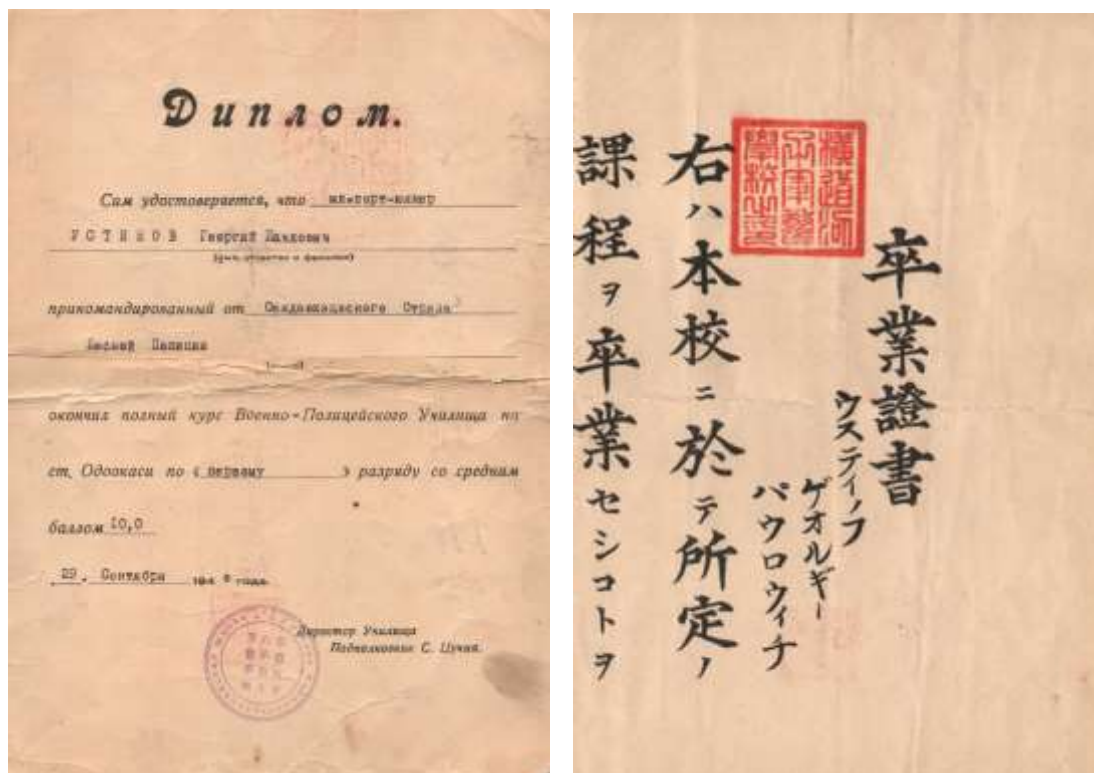 Диплом.
Сим удостоверяется, что мл-порт-юнкер
УСТИНОВ Георгий Павлович
(имя, отчество и фамилия)
прикомандированный от
окончил полный курс Военно-Полицейского Училища на
ст. Одоокаси по « первому » разряду со средним
баллом 10,0
29. Сентября 194 года.
Директор Училища
Подполковник С. Цучия.
卒業證書
ウスティノフ
ゲオルギー
パウロウィチ
右ハ本校ニ於テ所定ノ
課程ヲ卒業セシコトヲ